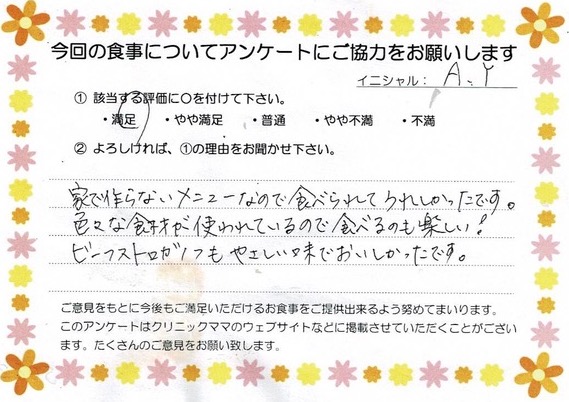 今回の食事についてアンケートにご協力をお願いします
イニシャル： A.Y
① 該当する評価に○を付けて下さい。
・満足 ・やや満足 ・普通 ・やや不満 ・不満
② よろしければ、①の理由をお聞かせ下さい。
家で作らないメニューなので食べられてうれしかったです。
色々な食材が使われているので食べるのも楽しい！
ビーフストロガノフもやさしい味でおいしかったです。
ご意見をもとに今後もご満足いただけるお食事をご提供出来るよう努めてまいります。
このアンケートはクリニックママのウェブサイトなどに掲載させていただくことがござい
ます。たくさんのご意見をお願い致します。